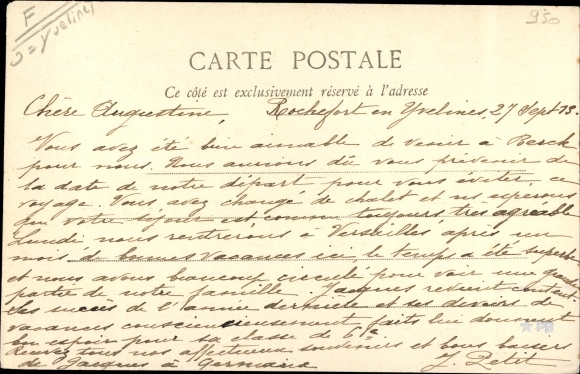 F
= Yvelines
950
CARTE POSTALE
Ce côté est exclusivement réservé à l'adresse
Chère Augustine, Rochefort en Yvelines, 27 Sept 13.
Vous avez été bien aimable de venir à Berck
pour nous. Nous aurions dû vous prévenir de
la date de notre départ pour vous éviter ce
voyage. Vous avez changé de chalet et ns espérons
que votre séjour est comme toujours très agréable
Lundi nous rentrerons à Versailles après un
mois de bonnes vacances ici, le temps a été superbe
et nous avons beaucoup circulé pour voir une grande
partie de notre famille. Jacques revient content
ses succès de l'année dernière et ses devoirs de
vacances consciencieusement faits lui donnent
bon espoir pour sa classe de 6e
Recevez tous nos affectueux souvenirs et bons baisers
de Jacques à Germaine J. Petit